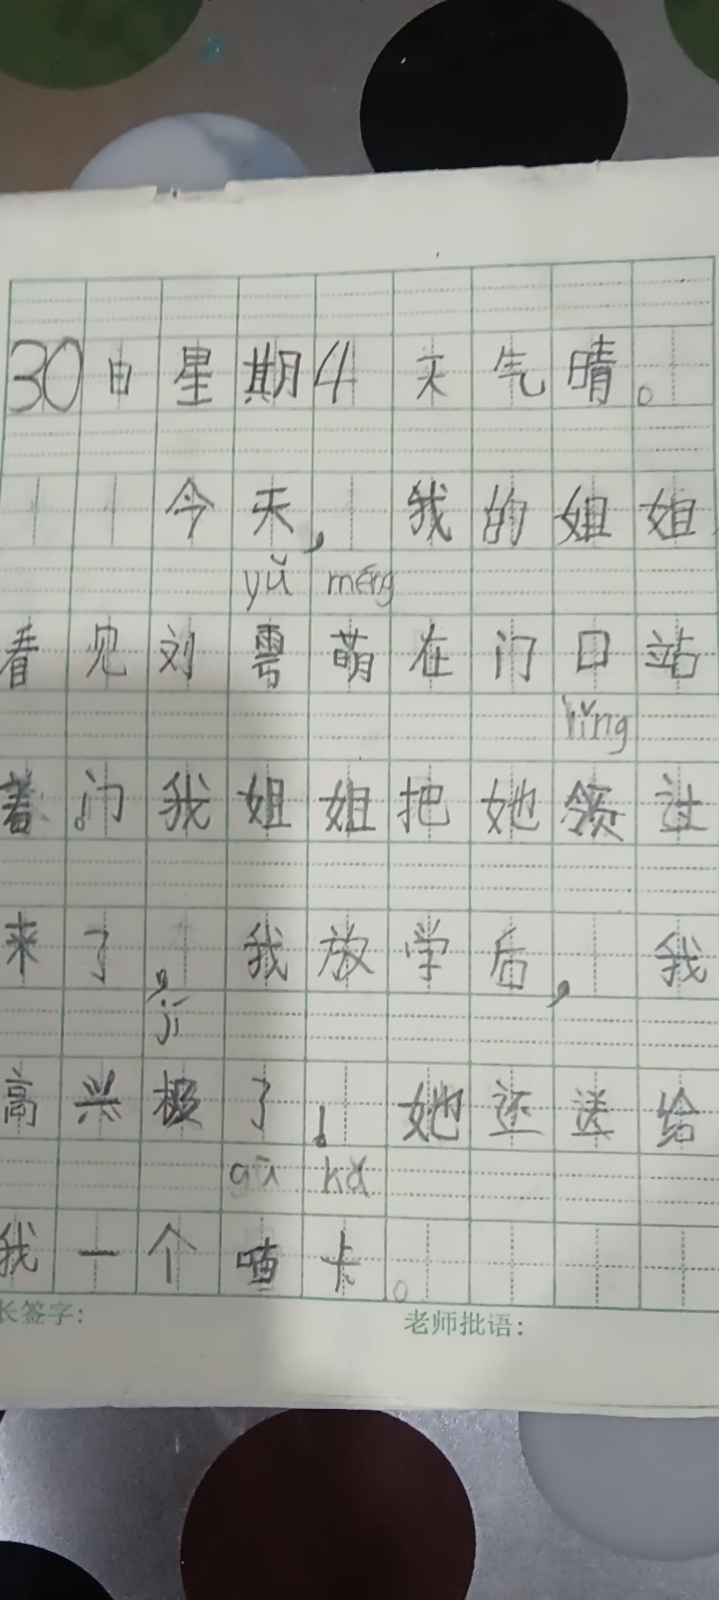 30日星期4天气晴。
今天,我的姐姐
yǔ méng
看见刘雩萌在门口站
lǐng
着。门我姐姐把她领过
来了,我放学后,我
jí
高兴极了!她还送给
gū kǎ
我一个卡。
长签字: 老师批语: